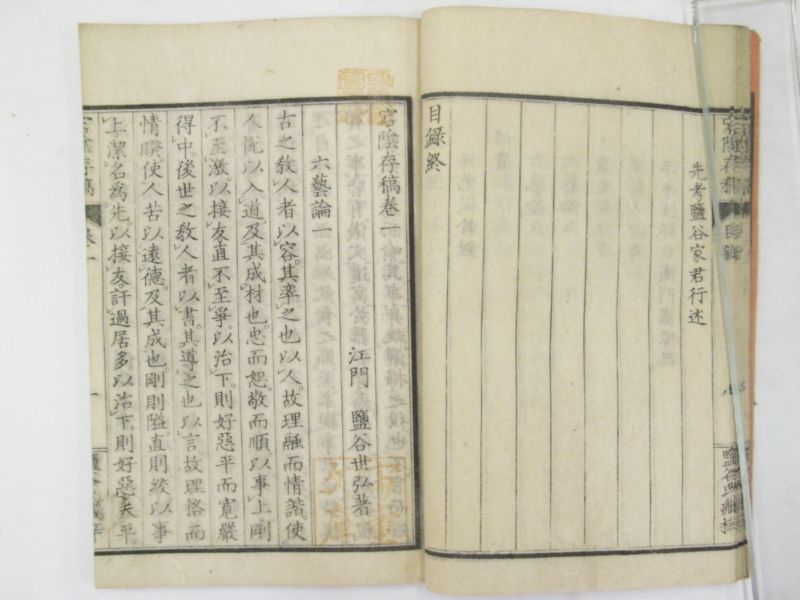 先考鹽谷家君行述
目錄終
宕陰存稿卷一
江門 鹽谷世弘著
六藝論一
古之敎人者以容。其率之也以人。故理融而情藹。使
人悅以入道。及其成材也。忠而恕。敬而順。以事上。剛
不至激。以接友。直不至爭。以治下。則好惡平而寬嚴
得中。後世之敎人者以書。其導之也以言。故理格而
情暌。使人苦以遠德。及其成也。剛則隘。直則絞。以事
上。潔名爲先。以接友。訐過居多。以治下。則好惡失平。
宕陰存稿 卷一